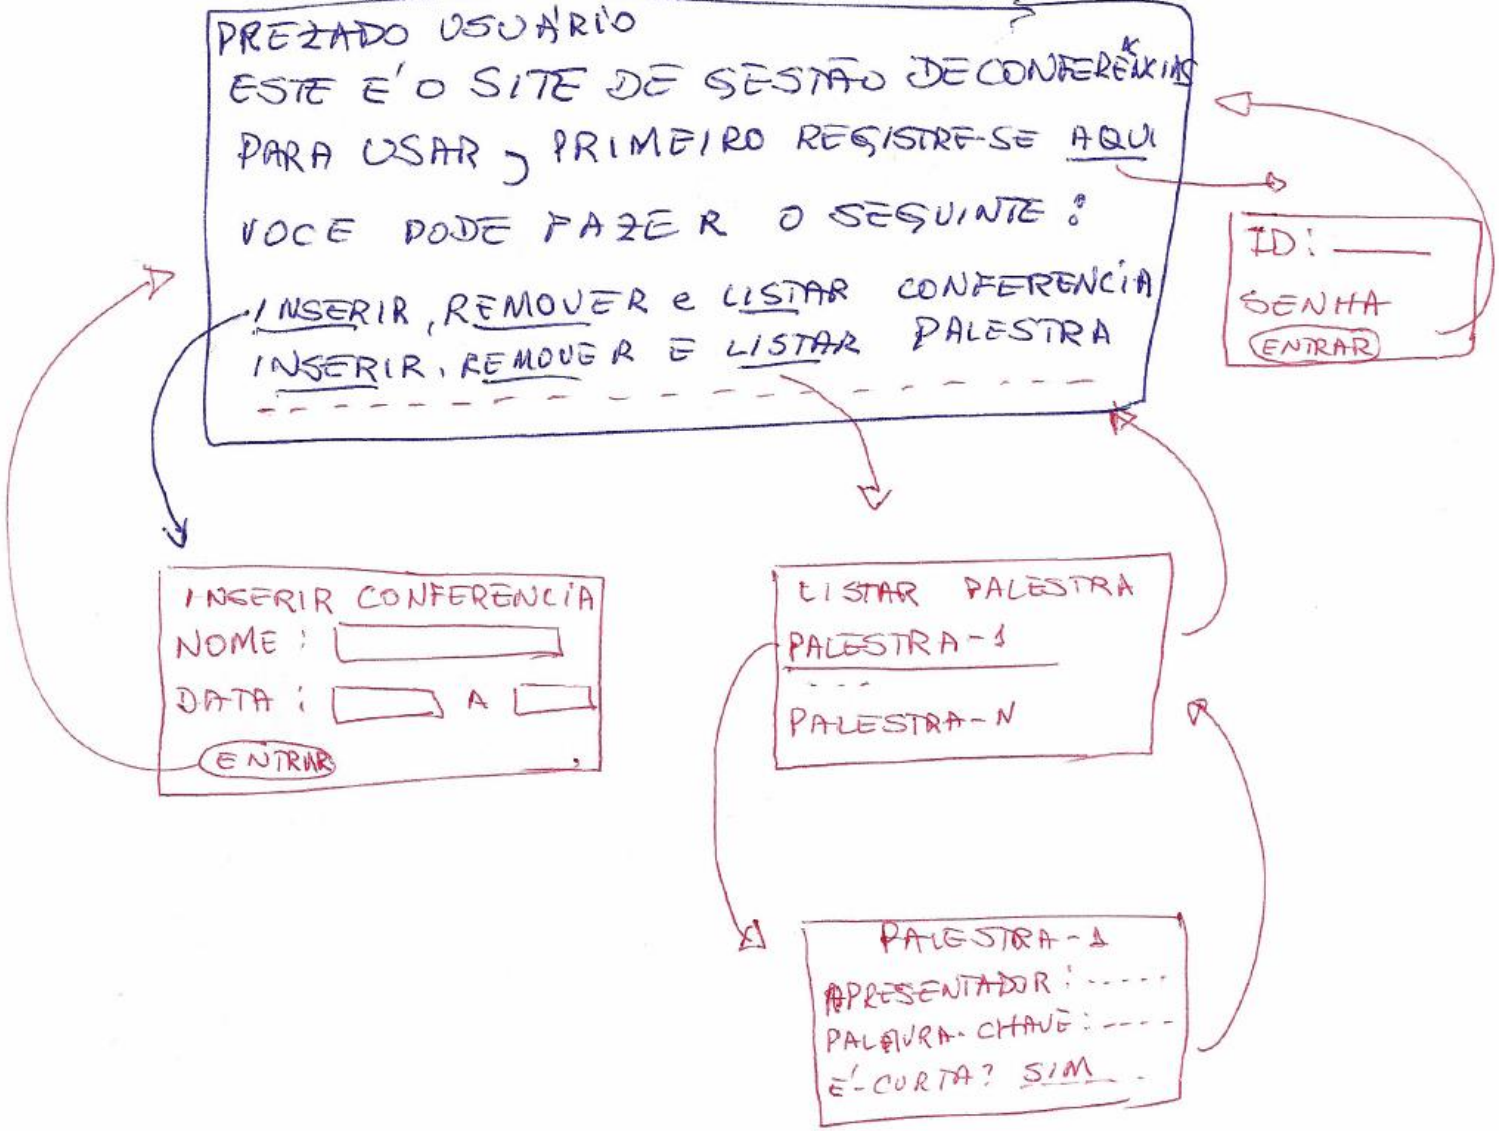 PREZADO USUÁRIO
ESTE É O SITE DE GESTÃO DE CONFERÊNCIAS
PARA USAR, PRIMEIRO REGISTRE-SE AQUI
VOCE PODE FAZER O SEGUINTE:
INSERIR, REMOVER e LISTAR CONFERENCIA
INSERIR, REMOVER E LISTAR PALESTRA
ID:
SENHA
ENTRAR
INSERIR CONFERENCIA
NOME:
DATA: A
ENTRAR
LISTAR PALESTRA
PALESTRA-1
PALESTRA-N
PALESTRA-1
APRESENTADOR:
PALAVRA-CHAVE:
É-CURTA? SIM